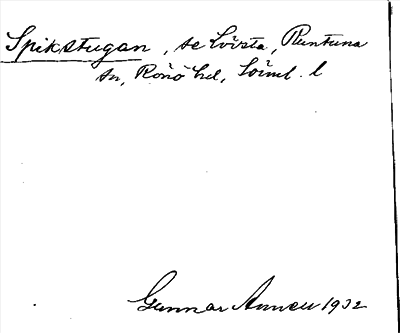 Spikstugan, se Lövsta, Runtuna
sn, Rönö hd, Söml. l
Gunnar Annell 1932